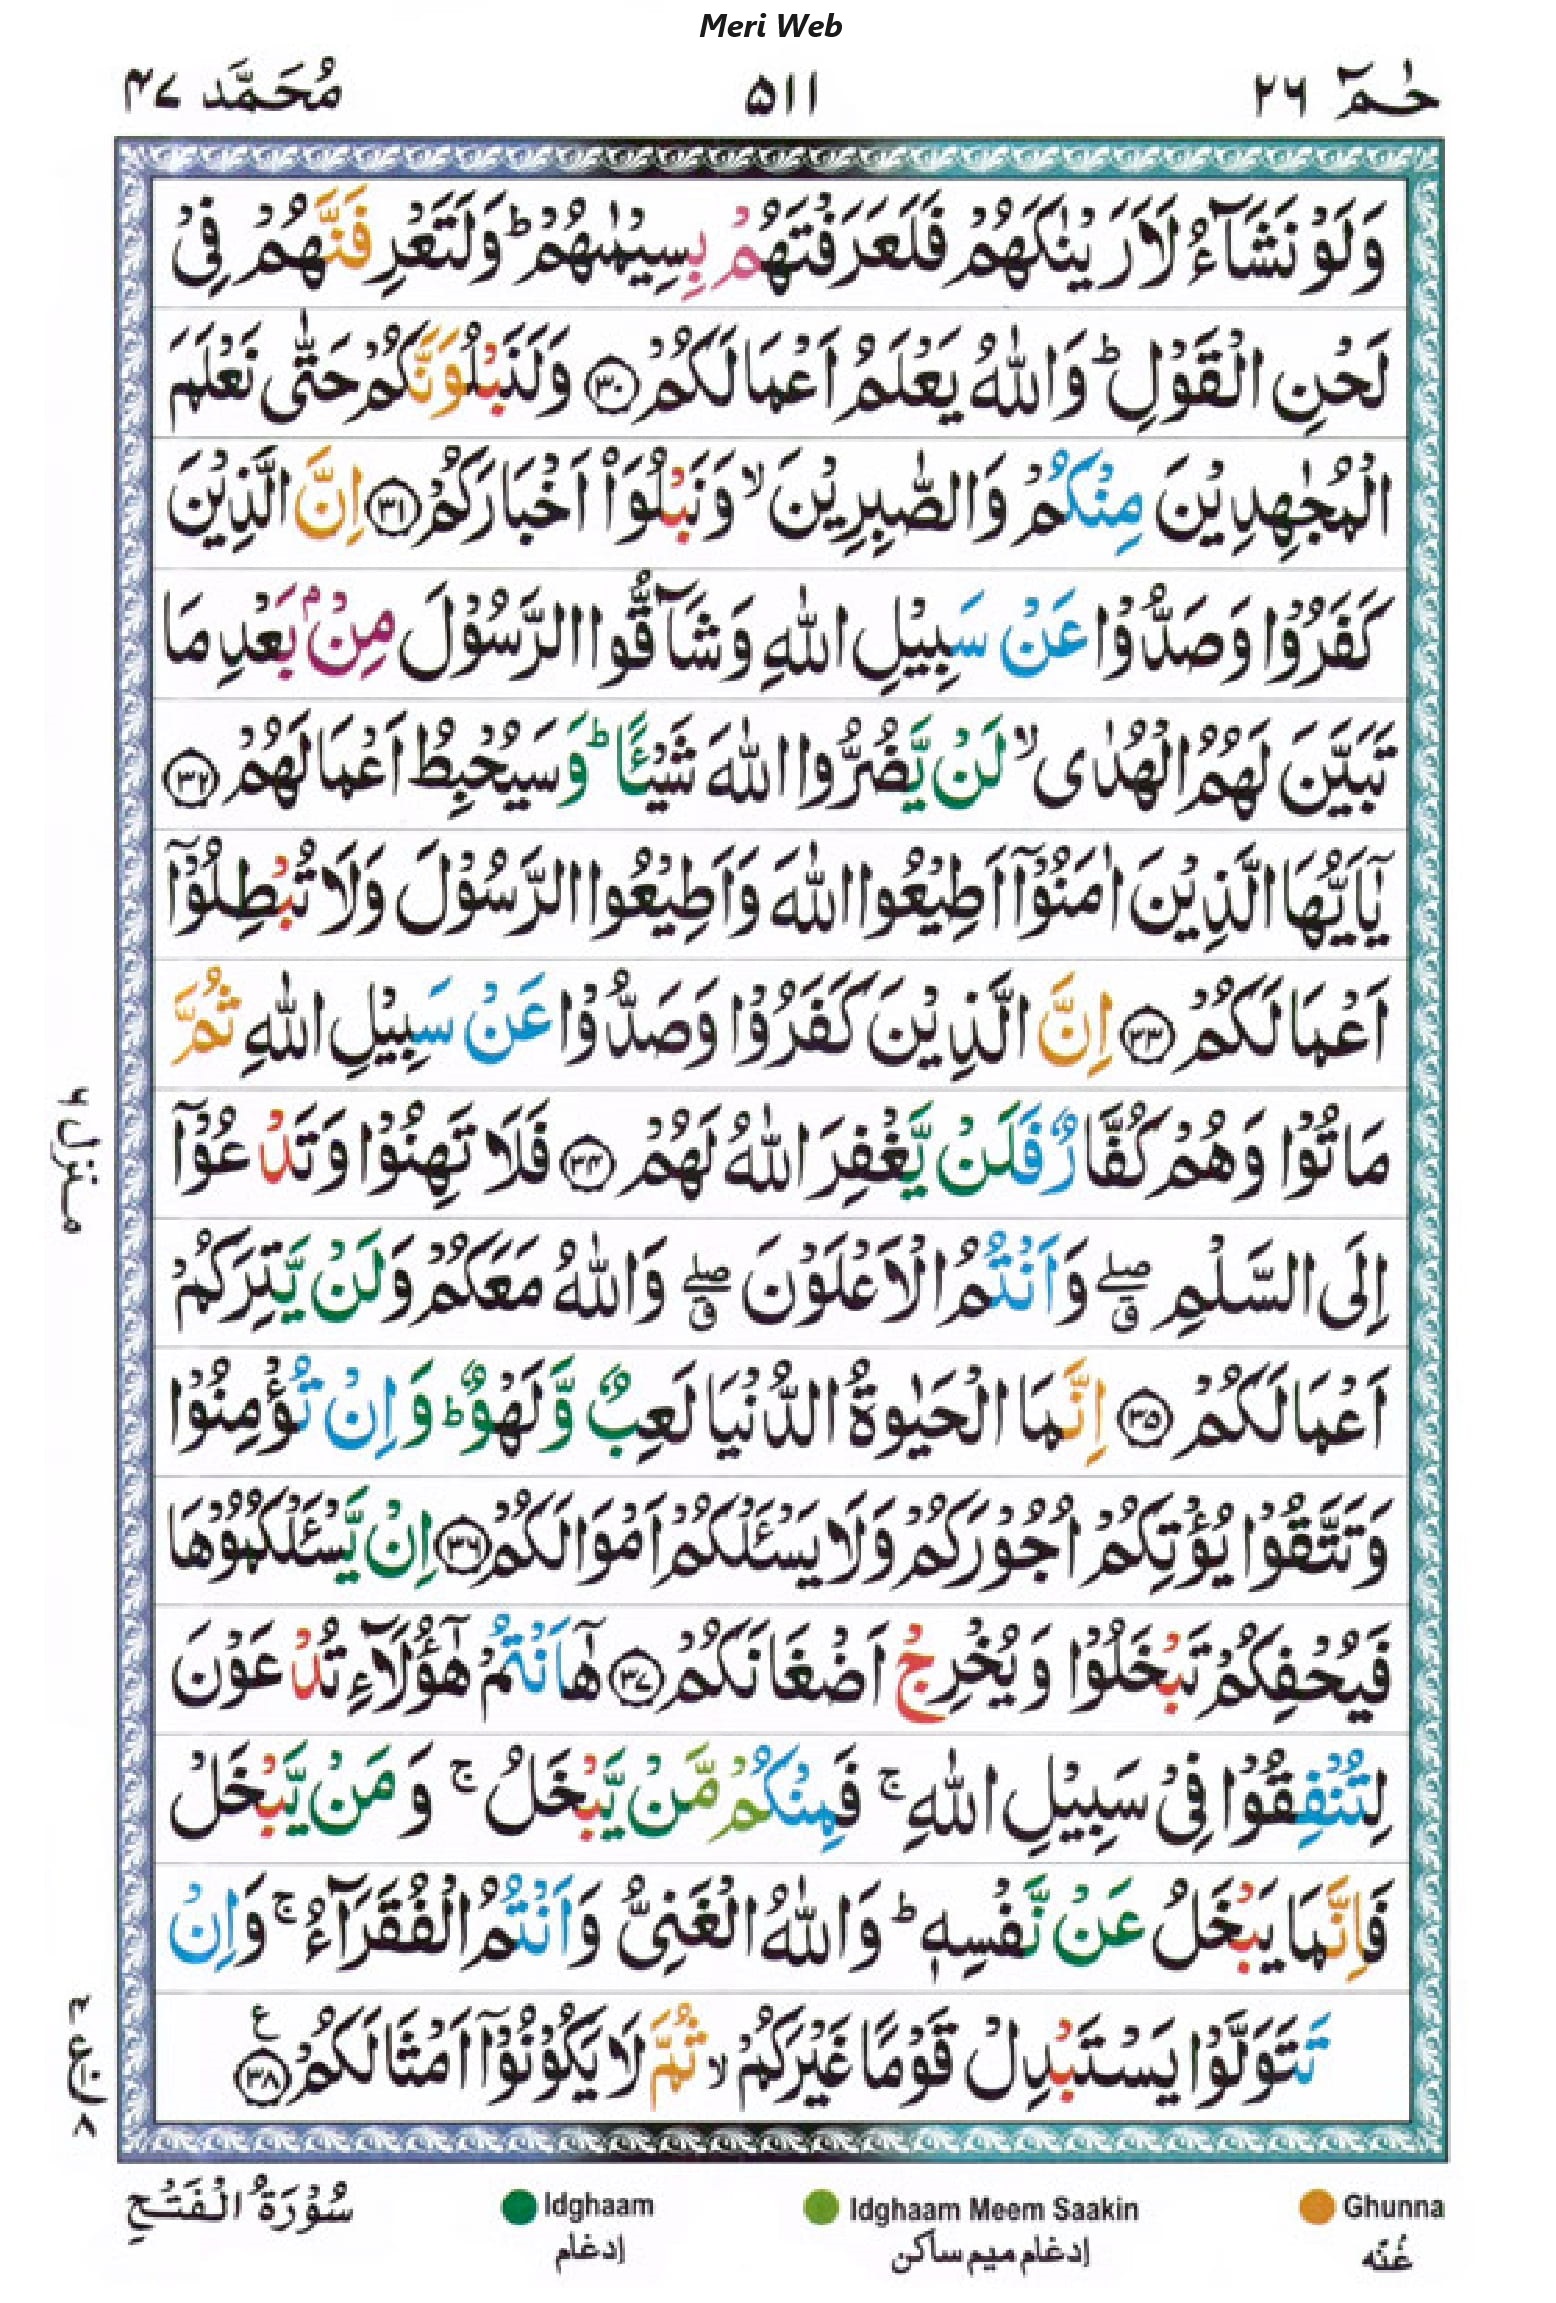 Meri Web
حٰمٓ ٢٦
٥١١
مُحَمَّد ٤٧
وَلَوْ نَشَآءُ لَاَرَيْنٰكَهُمْ فَلَعَرَفْتَهُمْ بِسِيْمٰىهُمْ ؕ وَلَتَعْرِفَنَّهُمْ فِیْ
لَحْنِ الْقَوْلِ ؕ وَاللّٰهُ يَعْلَمُ اَعْمَالَكُمْ ﴿٣٠﴾ وَلَنَبْلُوَنَّكُمْ حَتّٰی نَعْلَمَ
الْمُجٰهِدِيْنَ مِنْكُمْ وَالصّٰبِرِيْنَ ۙ وَنَبْلُوَا۟ اَخْبَارَكُمْ ﴿٣١﴾ اِنَّ الَّذِيْنَ
كَفَرُوْا وَصَدُّوْا عَنْ سَبِيْلِ اللّٰهِ وَشَآقُّوا الرَّسُوْلَ مِنْۢ بَعْدِ مَا
تَبَيَّنَ لَهُمُ الْهُدٰی ۙ لَنْ يَّضُرُّوا اللّٰهَ شَيْـًٔا ؕ وَسَيُحْبِطُ اَعْمَالَهُمْ ﴿٣٢﴾
يٰۤاَيُّهَا الَّذِيْنَ اٰمَنُوْۤا اَطِيْعُوا اللّٰهَ وَاَطِيْعُوا الرَّسُوْلَ وَلَا تُبْطِلُوْۤا
اَعْمَالَكُمْ ﴿٣٣﴾ اِنَّ الَّذِيْنَ كَفَرُوْا وَصَدُّوْا عَنْ سَبِيْلِ اللّٰهِ ثُمَّ
مَاتُوْا وَهُمْ كُفَّارٌ فَلَنْ يَّغْفِرَ اللّٰهُ لَهُمْ ﴿٣٤﴾ فَلَا تَهِنُوْا وَتَدْعُوْۤا
اِلَی السَّلْمِ ۖق وَاَنْتُمُ الْاَعْلَوْنَ ۖق وَاللّٰهُ مَعَكُمْ وَلَنْ يَّتِرَكُمْ
اَعْمَالَكُمْ ﴿٣٥﴾ اِنَّمَا الْحَيٰوةُ الدُّنْيَا لَعِبٌ وَّلَهْوٌ ؕ وَاِنْ تُؤْمِنُوْا
وَتَتَّقُوْا يُؤْتِكُمْ اُجُوْرَكُمْ وَلَا يَسْـَٔلْكُمْ اَمْوَالَكُمْ ﴿٣٦﴾ اِنْ يَّسْـَٔلْكُمُوْهَا
فَيُحْفِكُمْ تَبْخَلُوْا وَيُخْرِجْ اَضْغَانَكُمْ ﴿٣٧﴾ هٰۤاَنْتُمْ هٰۤؤُلَآءِ تُدْعَوْنَ
لِتُنْفِقُوْا فِیْ سَبِيْلِ اللّٰهِ ۚ فَمِنْكُمْ مَّنْ يَّبْخَلُ ۚ وَمَنْ يَّبْخَلْ
فَاِنَّمَا يَبْخَلُ عَنْ نَّفْسِهٖ ؕ وَاللّٰهُ الْغَنِیُّ وَاَنْتُمُ الْفُقَرَآءُ ۚ وَاِنْ
تَتَوَلَّوْا يَسْتَبْدِلْ قَوْمًا غَيْرَكُمْ ۙ ثُمَّ لَا يَكُوْنُوْۤا اَمْثَالَكُمْ ﴿٣٨﴾ ع
منزل ٦
سُوْرَةُ الْفَتْحِ
Idghaam
إدغام
Idghaam Meem Saakin
إدغام ميم ساكن
Ghunna
غُنّه